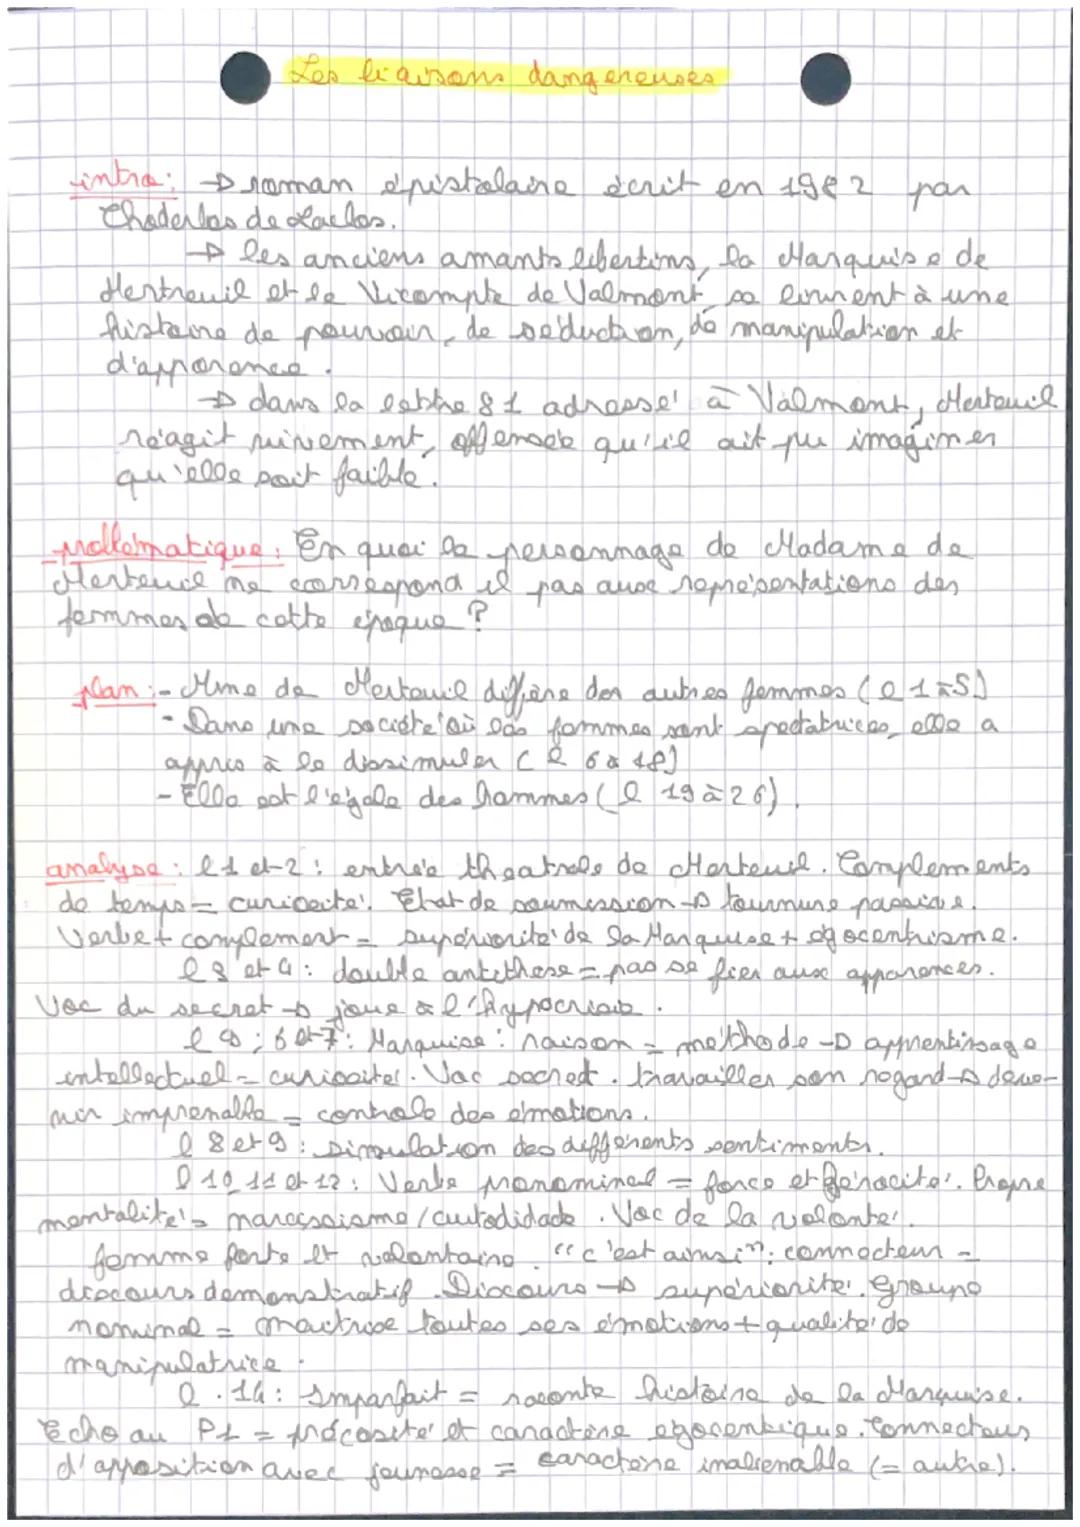 Les liaisons dangereuses
intro: → roman épistolaire écrit en 1982 par
Choderlos de Laclos.
→ les anciens amants libertins, la Marquise de
Mertreuil et le Vicompte de Valmont se livrent à une
histoire de pouvoir, de séduction, de manipulation et
d'apparence.
→ dans la lettre 81 adressé à Valmont, Merteuil
réagit vivement, offensée qu'il ait pu imaginer
qu'elle soit faible.
problématique: En quoi le personnage de Madame de
Merteuil ne correspond il pas aux représentations des
femmes de cette époque ?
plan :- Mme de Merteuil diffère des autres femmes (l 1 à 5)
- Dans une société où les femmes sont spectatrices, elle a
appris à le dissimuler (l 6 à 18)
- Elle est l'égale des hommes (l 19 à 26).
analyse : l1 et 2 : entrée théatrale de Merteuil. Complements
de temps = curiosité. Etat de soumission → tournure passive.
Verbe + complement = supériorité de la Marquise + égocentrisme.
l 3 et 4 : double antithèse = pas se fier aux apparences.
Voc du secret → joue à l'hypocrisie.
6 et 7 : Marquise : raison = méthode → apprentissage
intellectuel = curiosité. Voc secret. travailler son regard → deve-
nir imprenable = controle des émotions.
l 8 et 9 : simulation des différents sentiments.
l 10, 11 et 12 : Verbe pronominal = force et férocité. Propre
mentalité = narcissisme / autodidade. Voc de la volonté.
femme forte et volontaire. "c'est ainsi" : connecteur =
discours demonstratif. Discours → supériorité. Groupe
nominal = maitrise toutes ses émotions + qualité de
manipulatrice.
l. 14 : Imparfait = raconte histoire de la Marquise.
Echo au P1 = précosité et caractère égocentrique. Connecteurs
d'apposition avec jeunesse = caractère inalienable (= autre).